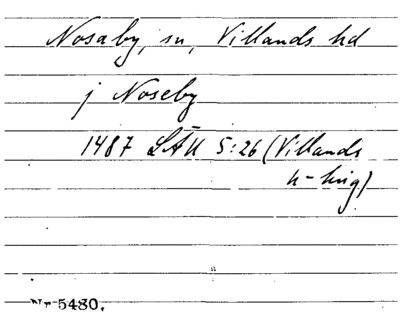 Nosaby, sn, Villands hd
j Noseby
1487 LÄU 5:26 (Villands
h-ting)
Nr 5480.